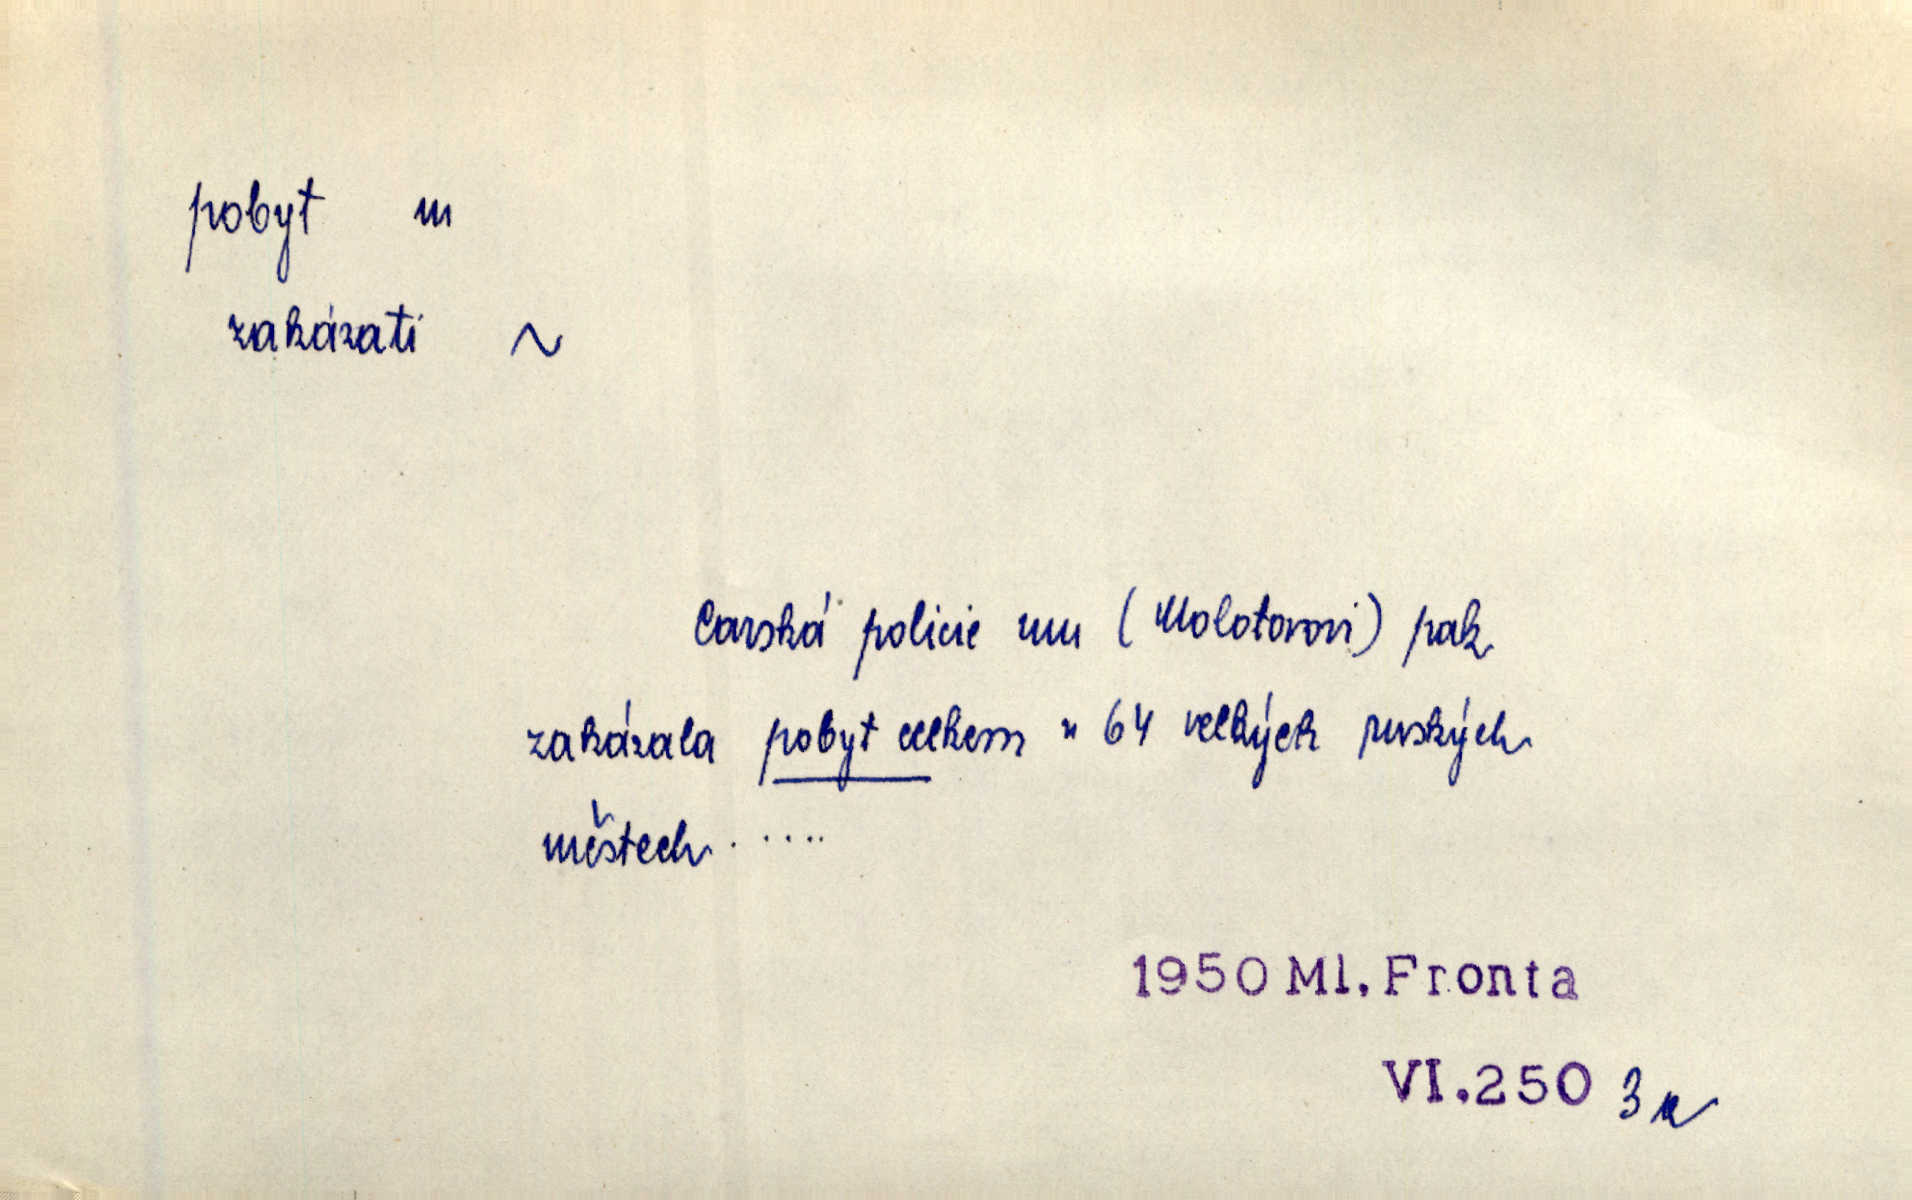 pobyt m
zakázati ~
Carská policie mu (Molotovovi) pak
zakázala pobyt celkem v 64 velkých ruských
městech. ....
1950 Ml. Fronta
VI.250 3a